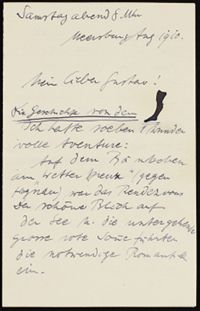 Samstag abend 8 Uhr
Meersburg Aug 1910.
Mein lieber Gustav!
Die Geschichte von dem
Ich hatte soeben 1 wunder
volle Aventure:
Auf dem Bänkchen
am Wetterkreuz (gegen
Hagnau) war das Rendezvous
Der schöne Blick auf
der See u. die untergehende
grosse rote Sonne führten
die notwendige Romantik
ein.